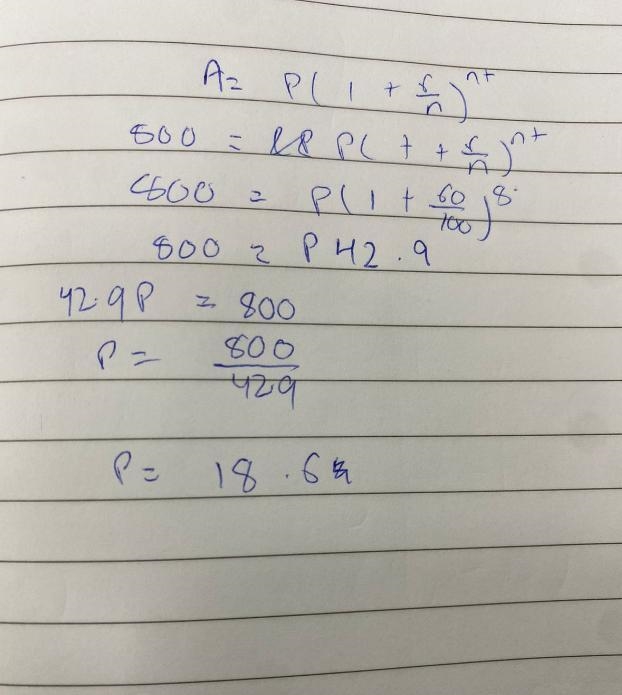 A= P(1 + r/n)^nt
800 = P(1 + r/n)^nt
800 = P(1 + 60/100)^8
800 = P 42.9
42.9P = 800
P = 800/42.9
P = 18.6